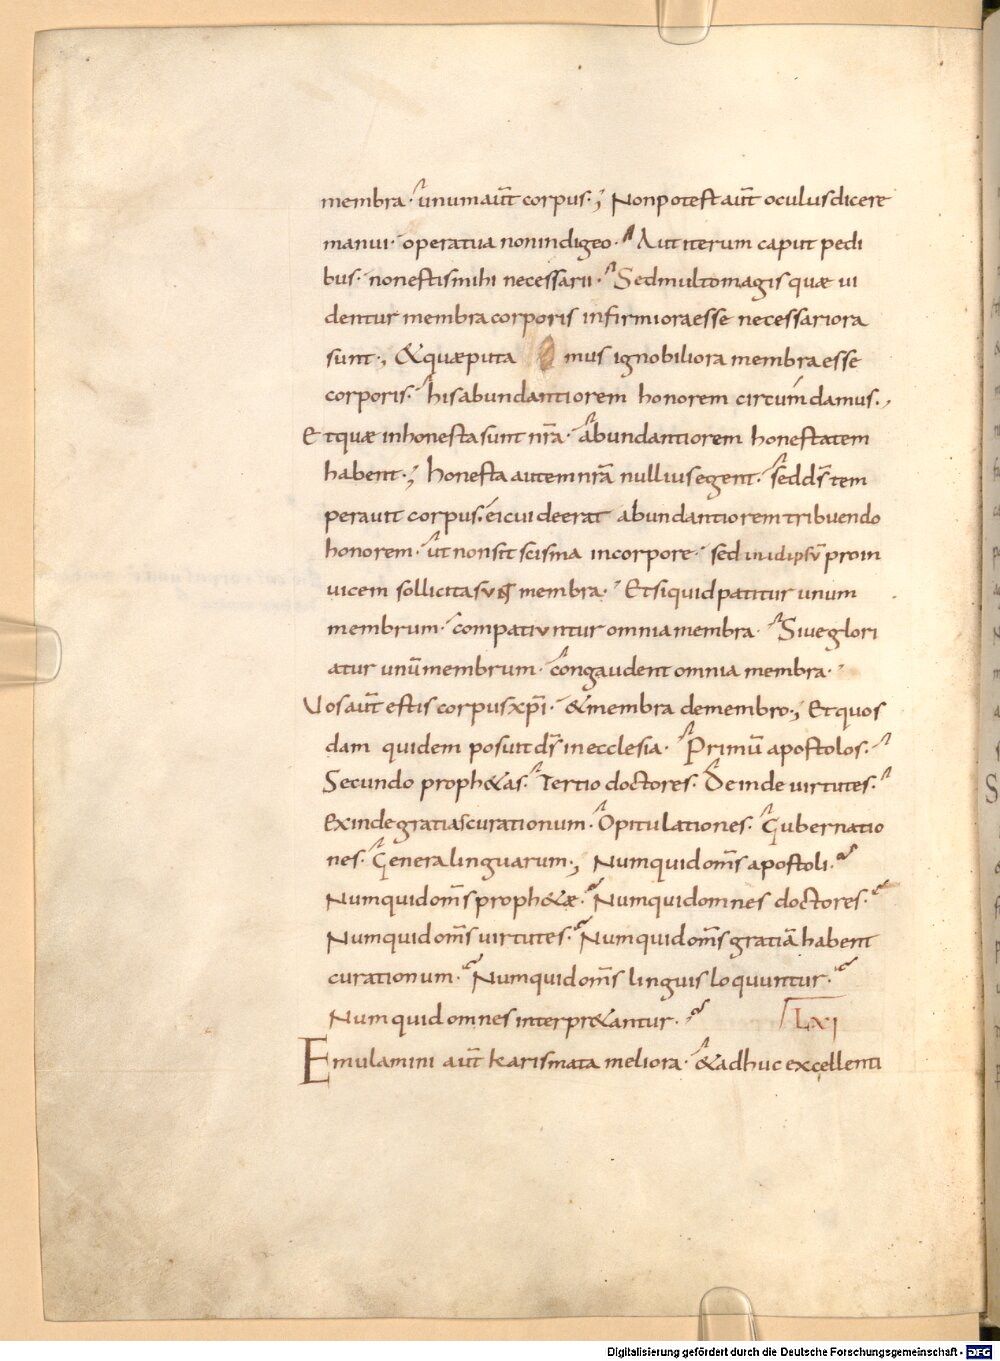 membra· unum aut̄ corpus·; Non potest aut̄ oculus dicere
manui· opera tua non indigeo· Aut iterum caput pedi
bus· non estis mihi necessarii· Sed multo magis quæ ui
dentur membra corporis infirmiora esse necessariora
sunt·, & quæ puta mus ignobiliora membra esse
corporis· his abundantiorem honorem circumdamus·,
Et quæ inhonesta sunt nr̄a· abundantiorem honestatem
habent·; honesta autem nr̄a nullius egent· sed ds̄ tem
perauit corpus· ei cui deerat abundantiorem tribuendo
honorem· ut non sit scisma in corpore· sed in id ipsū pro in
uicem sollicita sunt membra· Et si quid patitur unum
membrum· compatiuntur omnia membra· Siue glori
atur unū membrum· congaudent omnia membra·
Uos aut̄ estis corpus xp̄i· & membra de membro·, Et quos
dam quidem posuit ds̄ in ecclesia· Primū apostolos·
Secundo proph&as· Tertio doctores· Deinde uirtutes·
Exinde gratias curationum· Opitulationes· Gubernatio
nes· Genera linguarum·, Numquid om̄s apostoli·
Numquid om̄s proph&æ· Numquid omnes doctores·
Numquid om̄s uirtutes· Numquid om̄s gratiā habent
curationum· Numquid om̄s linguis loquuntur·
Numquid omnes interpr&antur· LXI
Emulamini aut̄ karismata meliora· & adhuc excellenti
Digitalisierung gefördert durch die Deutsche Forschungsgemeinschaft - DFG